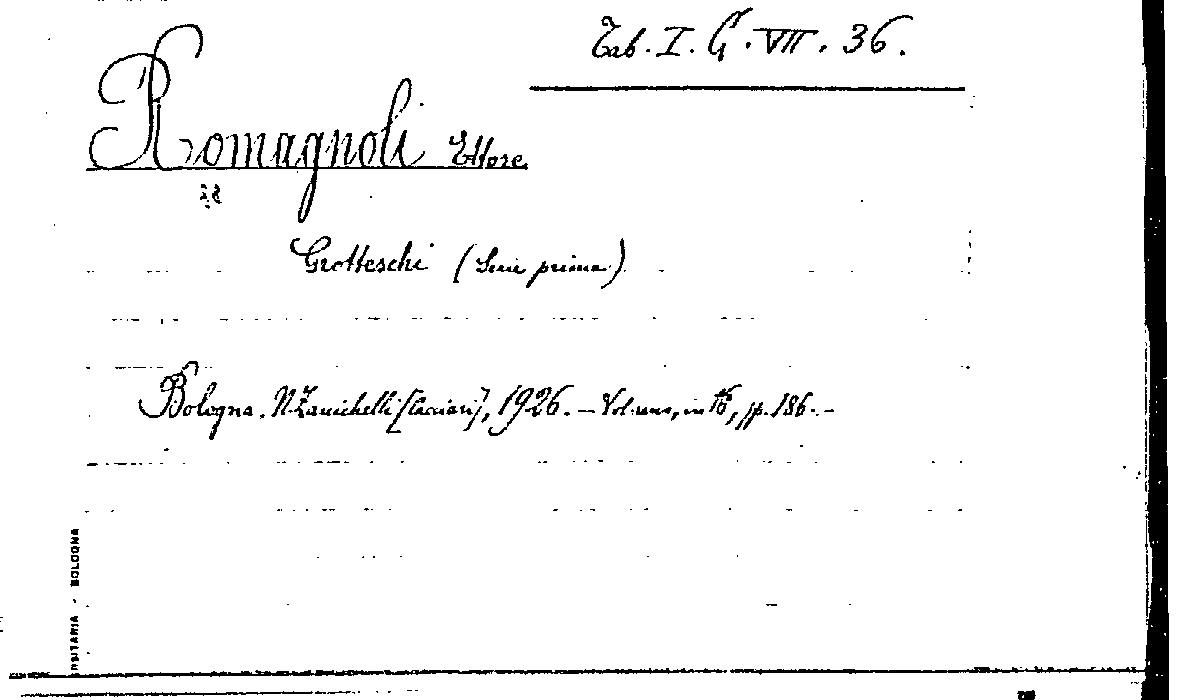 Tab. I. G. VII. 36.
Romagnoli Ettore
Grotteschi (Serie prima)
Bologna. N. Zanichelli [Cacciari], 1926. – Vol. uno, in 16°, pp. 186. –
RSITARIA - BOLOGNA